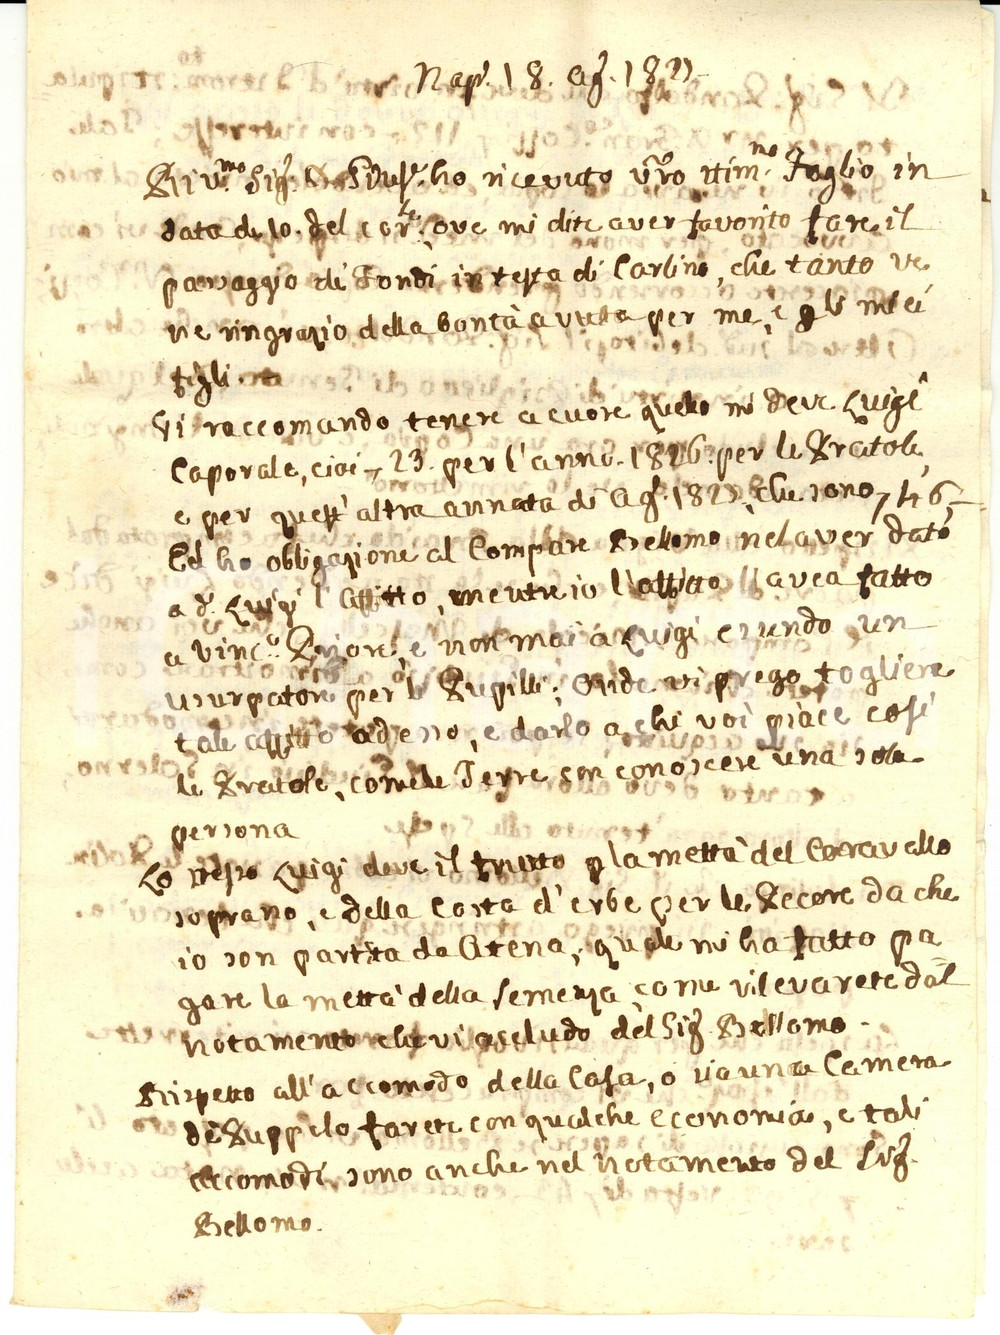 Nap. 18. Ag. 182
Riv.mo Sig. D. Gius. ho ricevuto vro stim.mo Foglio in
data de 10. del cor.te, ove mi dite aver favorito fare il
passaggio de' Fondi in testa di Carlino, che tanto ve
ne ringrazio della bontà avuta per me, e gli miei
figli.
Vi raccomando tenere a cuore quello mi deve Luigi
Caporale, cioè 23. per l'anno 1826. per le Fratole,
e per quest'altra annata di Ag. 182 che sono 46
Ed ho obbligazione al Compare Bellomo nel aver dato
a d. Luigi l'affitto, mentre io l'affitto l'avea fatto
a Vinc.o, e non mai a Luigi essendo un
usurpatore per li Pupilli; Onde vi prego togliere
tale affitto adesso, e darlo a chi voi piace così
le Fratole, come le Terre con conoscere una sola
persona
Lo stesso Luigi deve il frutto p la mettà del Caravallo
soprano, e della Costa d'erbe per le Pecore da che
io son partita da Atena, quale mi ha fatto pa
gare la mettà della semenza come rilevarete dal
notamento che vi accludo del Sig. Bellomo.
Rispetto all'accomodo della Casa, o sia una Camera
de Suppelo farete con qualche economia, e tali
accomodi sono anche nel notamento del Sig.
Bellomo.